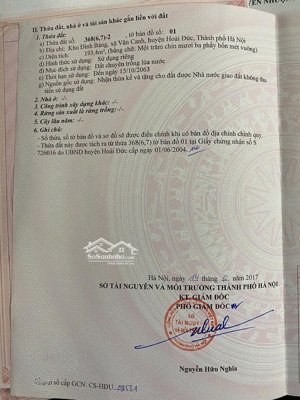 II. Thửa đất, nhà ở và tài sản khác gắn liền với đất
1. Thửa đất:
a) Thửa đất số: 368(6,7)-2 tờ bản đồ số: 01
b) Địa chỉ: Khu Đình Bảng, xã Vân Canh, huyện Hoài Đức, Thành phố Hà Nội
c) Diện tích: 193,4m², (bằng chữ: Một trăm chín mươi ba phẩy bốn mét vuông)
d) Hình thức sử dụng: Sử dụng riêng
đ) Mục đích sử dụng: Đất chuyên trồng lúa nước
e) Thời hạn sử dụng: Đến ngày 15/10/2063
g) Nguồn gốc sử dụng: Nhận thừa kế và tặng cho đất được Nhà nước giao đất không thu
tiền sử dụng đất
2. Nhà ở: -/-
3. Công trình xây dựng khác: -/-
4. Rừng sản xuất là rừng trồng: -/-
5. Cây lâu năm: -/-
6. Ghi chú:
- Số thửa, số tờ bản đồ và sơ đồ sẽ được điều chỉnh khi có bản đồ địa chính chính quy
- Thửa đất này được tách ra từ thửa 368(6,7) tờ bản đồ 01 tại Giấy chứng nhận số S
726016 do UBND huyện Hoài Đức cấp ngày 01/06/2004.
SoSanhNha.com
Hà Nội, ngày tháng năm 2017
SỞ TÀI NGUYÊN VÀ MÔI TRƯỜNG THÀNH PHỐ HÀ NỘI
KT. GIÁM ĐỐC
PHÓ GIÁM ĐỐC
SỞ
TÀI NGUYÊN
Nguyễn Hữu Nghĩa
số cấp GCN: CS-HĐU